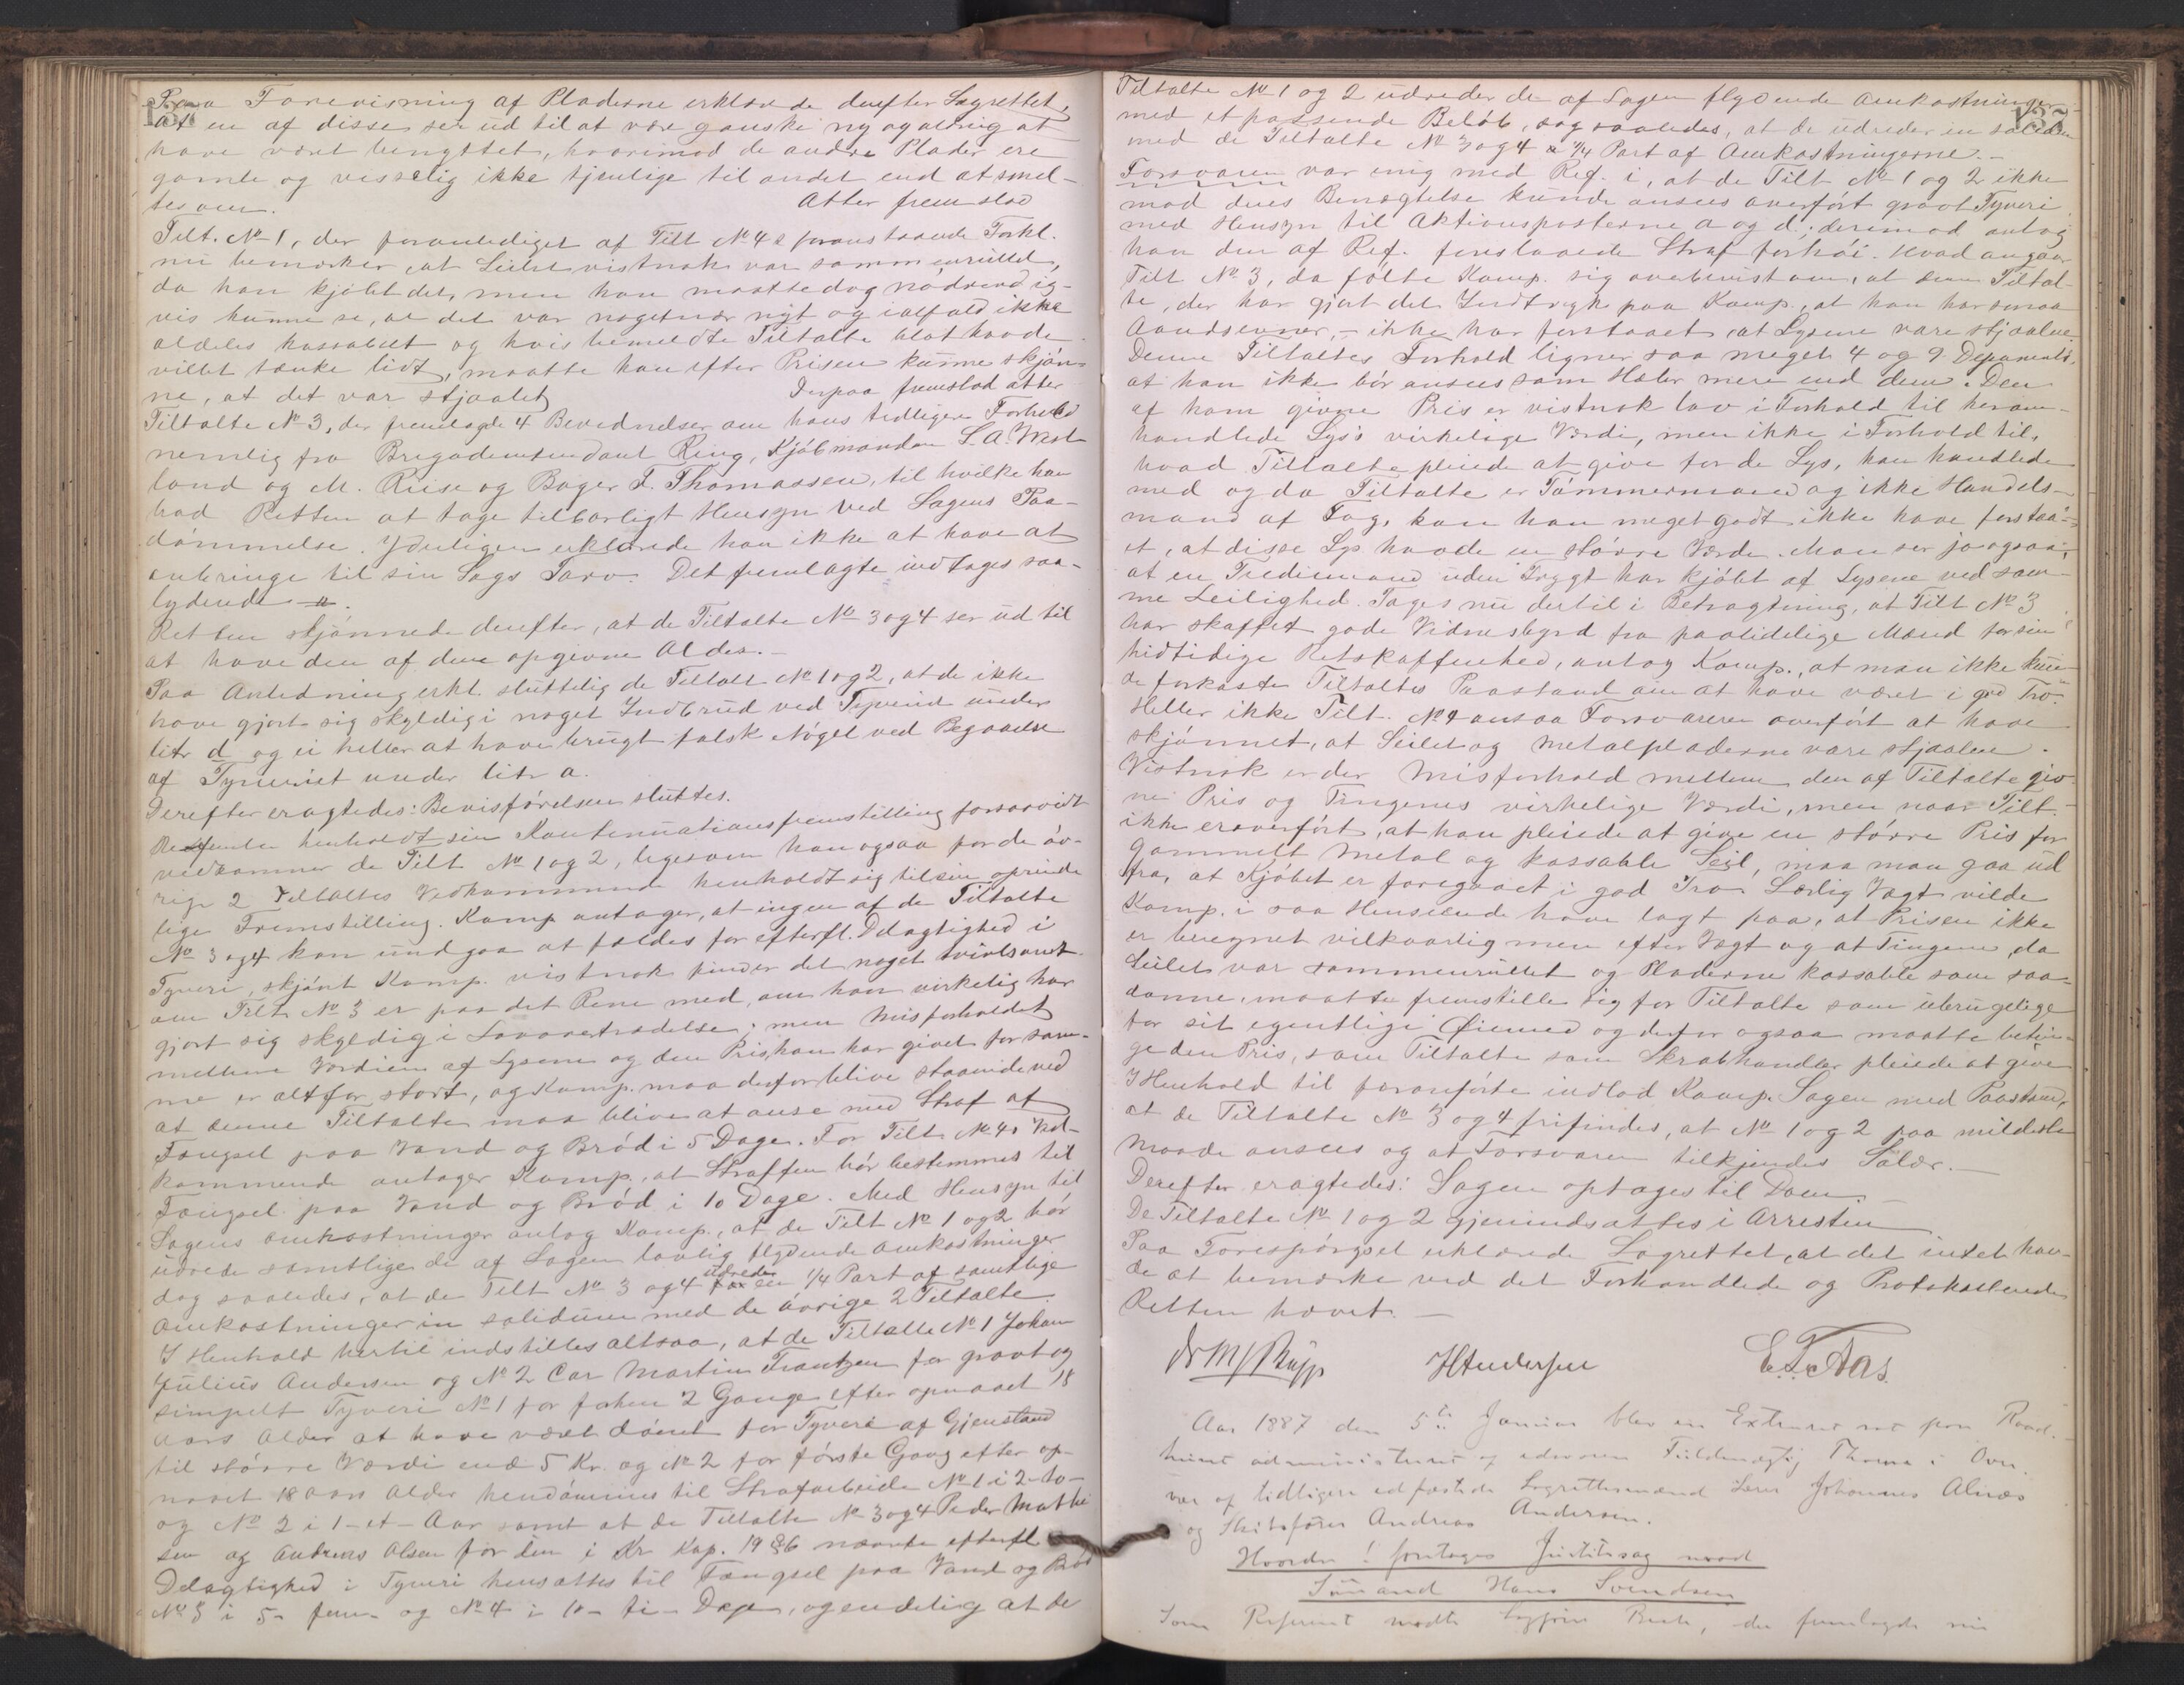 Paa Forevisning af Pladerne erklærede derefter Lagrettet,
at en af disse ser ud til at være ganske ny og aldrig at
have været benyttet, hvorimod de andre Plader ere
gamle og visselig ikke tjenlige til andet end at smel-
tes om. Atter fremstod
Tilt. No 1, der foranlediget af Tilt No 4s foranstaaende Forkl.
nu bemærker, at Seilet vistnok var sammenrullet,
da han kjøbt det, men han maatte dog nødvendig-
vis kunne se, at det var nogenlunde nyt og ialfald ikke
aldeles kassabelt og hvis bemeldte Tiltalte blot havde
villet tænke lidt, maatte han efter Prisen kunne skjøn-
ne, at det var stjaalet. Derpaa fremstod atter
Tiltalte No 3, der fremlagde 4 Bevidnelser om hans tidligere Forhold
nemlig fra Brigadeintendant Ring, Kjøbmændene L. A. West
land og M. Riise og Bager F. Thomassen, til hvilke han
bad Retten at tage tilbørligt Hensyn ved Sagens Paa-
dømmelse. Yderligere erklærede han ikke at have at
anbringe til sin Sags Tarv. Det fremlagte indtages saa-
lydende
Retten skjønnede derefter, at de Tiltalte No 3 og 4 ser ud til
at have den af dem opgivne Alder.-
Paa Anledning erkl. sluttelig de Tiltalte No 1 og 2, at de ikke
have gjort sig skyldig i noget Indbrud ved Tyveriet under
litr d og ei heller at have brugt falsk Nøgel ved Begaaelse
af Tyveriet under litr a.
Derefter eragtedes: Bevisførelsen sluttes.
Referenten henholdt sin Kontinuationsfremstilling forsaavidt
vedkommer de Tilt No 1 og 2, ligesom han ogsaa for de øv-
rige 2 Tiltaltes Vedkommende henholdt sig til sin oprinde
lige Fremstilling. Komp antager, at ingen af de Tiltalte
No 3 og 4 kan undgaa at fældes for efterfl. Delagtighed i
Tyveri, skjønt Komp. vistnok finder det noget tvivlsomt
om Tilt No 3 er paa det Rene med, om han virkelig har
gjort sig skyldig i Lovovertrædelse; men Misforholdet
mellem Værdien af Lysene og den Pris, han har givet for sam-
me er altfor stort, og Komp. maa derfor blive staaende ved
at denne Tiltalte maa blive at anse med Straf af
Fængsel paa Vand og Brød i 5 Dage. For Tilt No 4s Ved-
kommende antager Komp, at Straffen bør bestemmes til
Fængsel paa Vand og Brød i 10 Dage. Med Hensyn til
Sagens Omkostninger antog Komp., at de Tilt No 1 og 2 bør
udrede samtlige de af Sagen lovlig flydende Omkostninger
dog saaledes, at de Tilt No 3 og 4 udreder en 1/4 Part af samtlige
Omkostninger in solidum med de øvrige 2 Tiltalte.
I Henhold hertil indstilles altsaa, at de Tiltalte No 1 Johan
Julius Andersen og No 2 Carl Martin Frantzen for grovt og
simpelt Tyveri No 1 for forhen 2 Gange efter opnaaet 18
Aars Alder at have været dømt for Tyveri af Gjenstand
til større Værdi end 5 Kr. og No 2 for første Gang efter op-
naaet 18 Aars Alder hendømmes til Strafarbeide No 1 i 2-to-
og No 2 i 1-et-Aar samt at de Tiltalte No 3 og 4 Peder Mathi
sen og Andreas Olsen for den i Kr Kap. 19 § 6 nævnte efterfl
Delagtighed i Tyveri hensættes til Fængsel paa Vand og Brød
No 3 i 5- fem- og No 4 i 10- ti- Dage, og endelig at de
137
Tiltalte No 1 og 2 udreder de af Sagen flydende Omkostninger
med et passende Beløb, dog saaledes, at de udreder in solidum
med de Tiltalte No 3 og 4 a 1/4 Part af Omkostningerne.-
Forsvaren var enig med Ref. i, at de Tilt No 1 og 2 ikke
mod deres Benægtelse kunde ansees overført grovt Tyveri
med Hensyn til Aktionsposterne a og d; derimod antog
han den af Ref. foreslaaede Straf forhøi. Hvad angaar
Tilt No 3, da følte Komp. sig overbevist om, at denne Tiltal-
te, der har gjort det Indtryk paa Komp., at han har smaa
Aandsevner,- ikke har forstaaet, at Lysene vare stjaalne
Denne Tiltaltes Forhold ligner saa meget 4 og 9 Deponents,
at han ikke bør ansees som Hæler mere end dem. Den
af ham givne Pris er vistnok lav i Forhold til herom-
handlede Lys's virkelige Værdi, men ikke i Forhold til,
hvad Tiltalte pleiede at give for de Lys, han handlede
med og da Tiltalte er Tømmermand og ikke Handels-
mand af Fag, kan han meget godt ikke have forstaa-
et, at disse Lys havde en større Værdi. Man ser jo ogsaa,
at en Trediemand uden Frygt har kjøbt af Lysene ved sam-
me Leilighed. Tages nu dertil i Betragtning, at Tilt No 3
har skaffet gode Vidnesbyrd fra paalidelige Mænd for sin
hidtidige Retskaffenhed, antog Komp., at man ikke kun-
de forkaste Tiltaltes Paastand om at have været i god Tro.
Heller ikke Tilt. No 4 ansaa Forsvareren overført at have
skjønnet, at Seilet og Metalpladerne vare stjaalne.
Vistnok er der Misforhold mellem den af Tiltalte giv-
ne Pris og Tingenes virkelige Værdi, men naar Tilt.
ikke er overført, at han pleiede at give en større Pris for
gammelt Metal og kassable Seil, maa man gaa ud
fra, at Kjøbet er foregaaet i god Tro. Særlig Vægt vilde
Komp. i saa Henseende have lagt paa, at Prisen ikke
er beregnet vilkaarlig men efter Vægt og at Tingene, da
Seilet var sammenrullet og Pladerne kassable som saa-
danne, maatte fremstille sig for Tiltalte som ubrugelige
for sit egentlige Øiemed og derfor ogsaa maatte betin-
ge den Pris, som Tiltalte som Skrabhandler pleiede at give
I Henhold til foranførte indlod Komp. Sagen med Paastand,
at de Tiltalte No 3 og 4 frifindes, at No 1 og 2 paa mildeste
Maade ansees og at Forsvaren tilkjendes Salær.-
Derefter eragtedes: Sagen optages til Dom.-
De Tiltalte No 1 og 2 gjenindsattes i Arresten
Paa Forespørgsel erklærede Lagrettet, at det intet hav-
de at bemærke ved det Forhandlede og Protokollerede
Retten hævet.-
H Andersen E. T. Aas.
Aar 1887 den 5te Januar blev en Extraret sat paa Raad-
huset administreret af edsvoren Fuldmægtig i Over-
vær af tidligere edfæstede Lagrettesmænd Lærer Johannes Alnæs
og Skibsfører Andreas Andersen.
Hvorda! foretages Justitssag mod
Sømand Hans Svendsen
Som Referent mødte Sagfører, der fremlagde sin